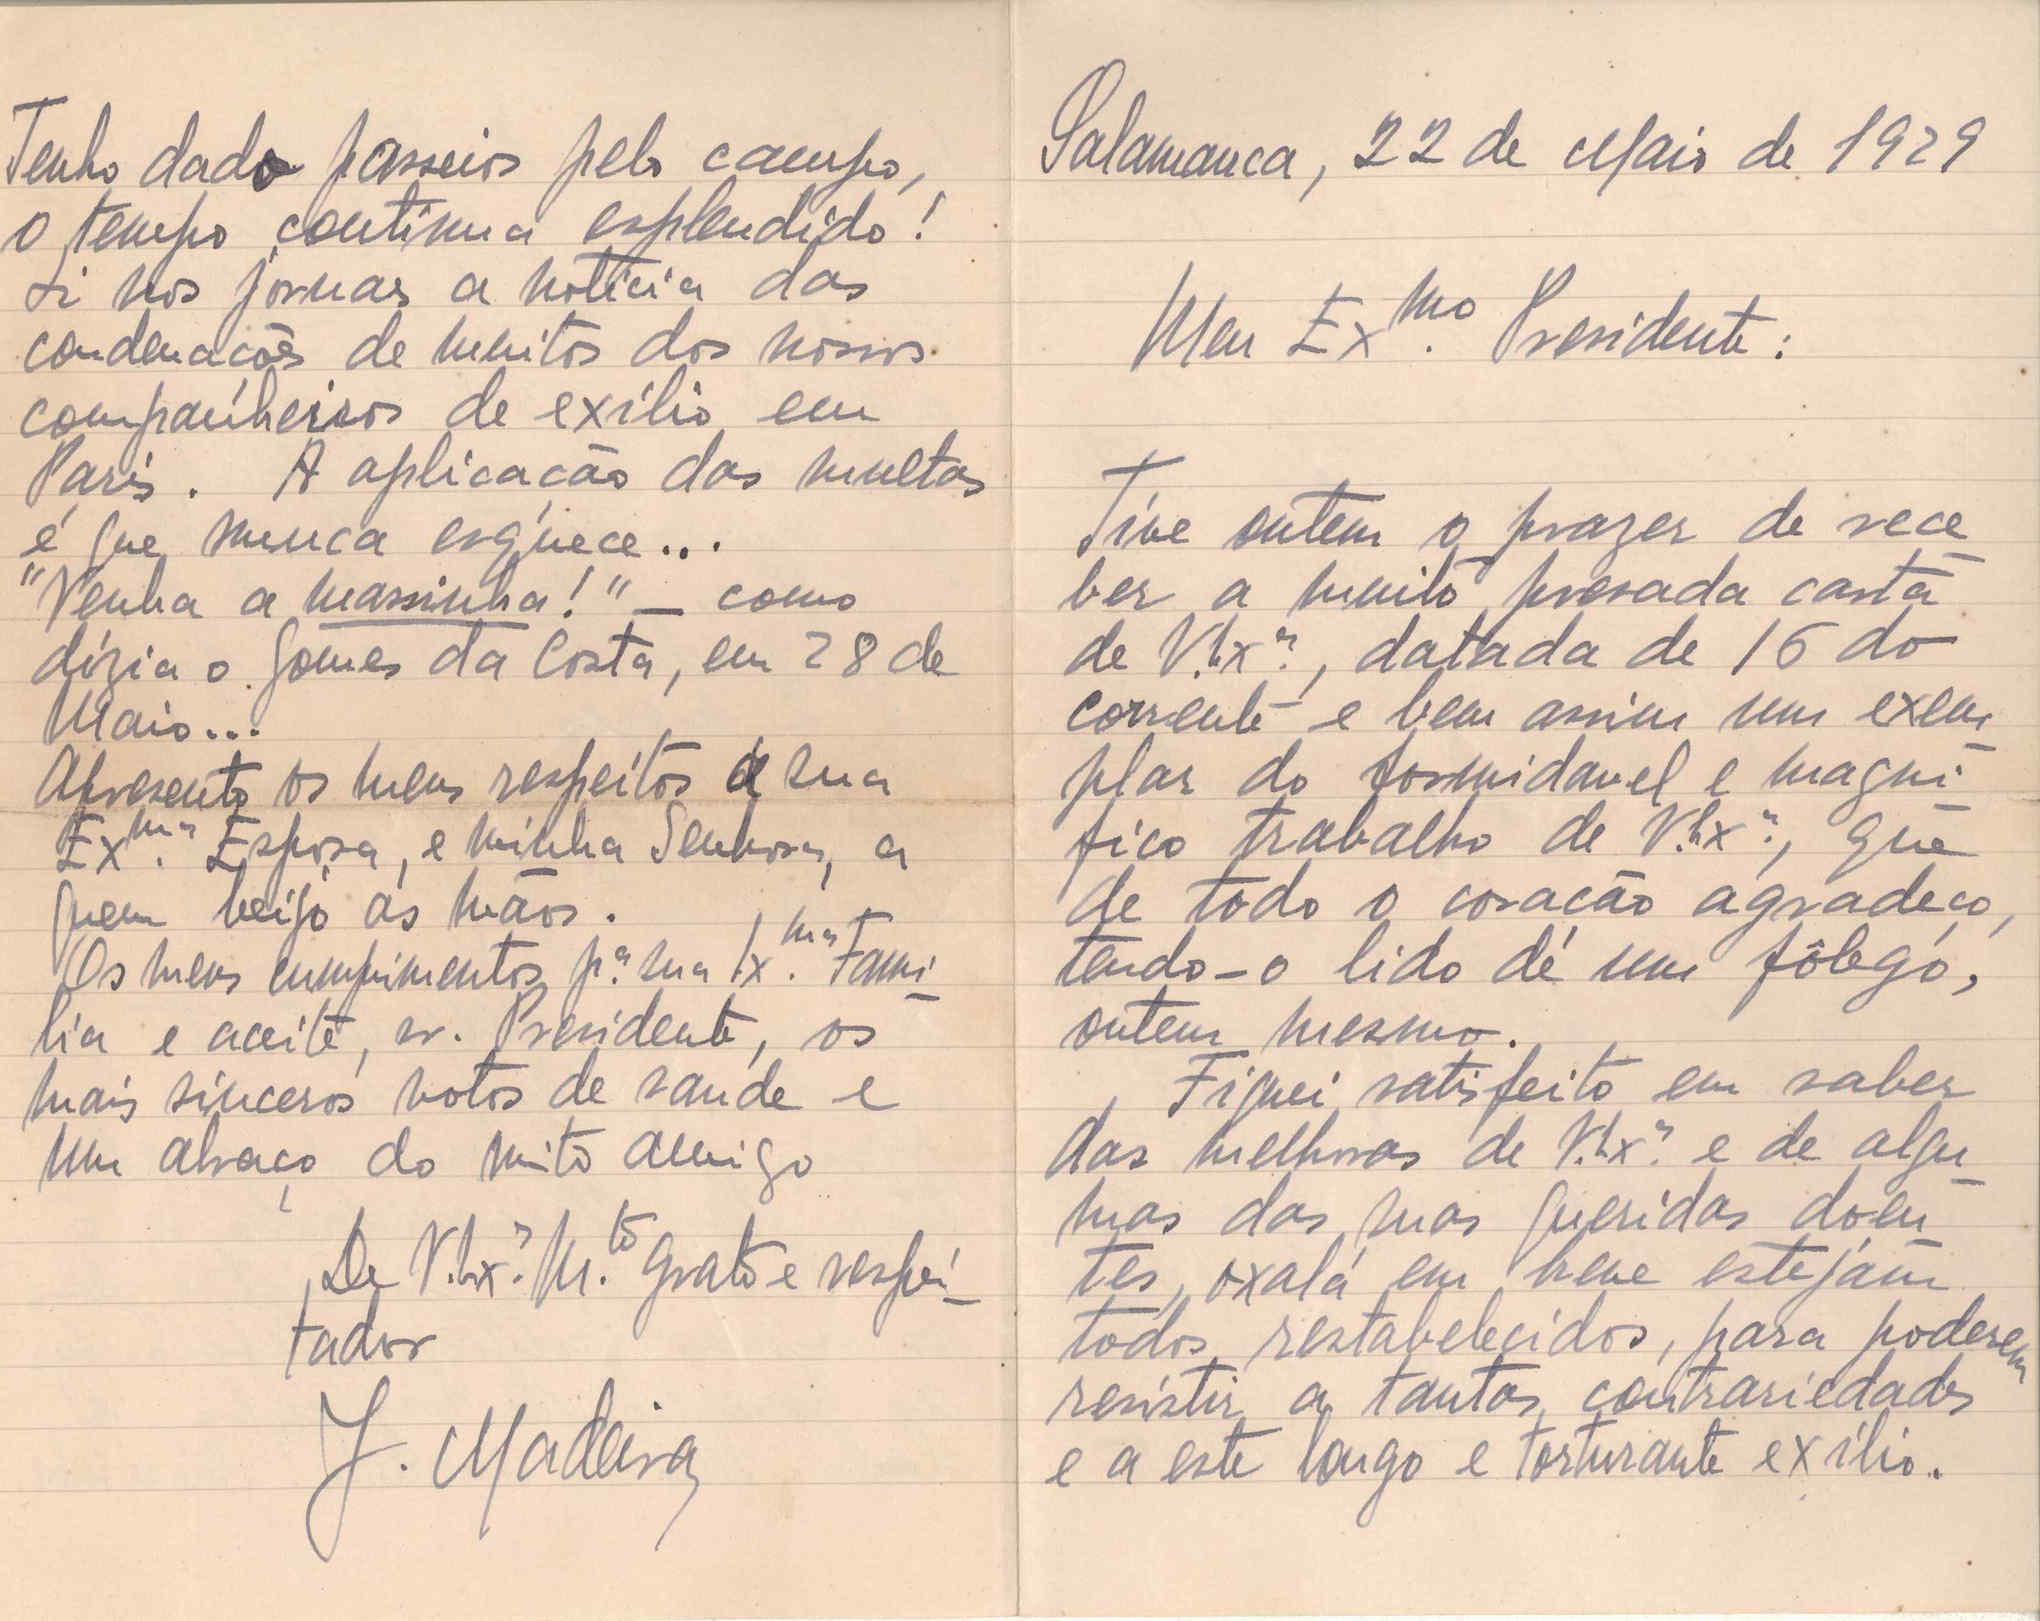 Salamanca, 22 de Maio de 1929
Meu Ex.mo Presidente:
Tive ontem o prazer de rece
ber a muito presada carta
de V. Ex.ª, datada de 16 do
corrente e bem assim um exem
plar do formidavel e magni
fico trabalho de V. Ex.ª, que
de todo o coracão agradeço,
tendo-o lido de um fôlego,
ontem mesmo.
Fiquei satisfeito em saber
das melhoras de V. Ex.ª e de algu
mas das suas queridas doen
tes, oxalá em breve estejam
todos restabelecidos, para poderem
resistir a tantas contrariedades
e a este longo e torturante exílio.
Tenho dado passeios pelo campo,
o tempo continua esplendido!
Li nos jornaes a noticia das
condenações de muitos dos nossos
companheiros de exílio em
Paris. A aplicacão das multas
é que nunca esquece...
"Venha a massinha!" — como
dizia o Gomes da Costa, em 28 de
Maio...
Apresento os meus respeitos a sua
Ex.ma Esposa, e minha Senhora, a
quem beijo as mãos.
Os meus cumprimentos p.ª sua Ex.ma Fami
lia e aceite, sr. Presidente, os
mais sinceros votos de saude e
um abraço do muito amigo
De V. Ex.ª M.to grato e respei-
tador
J. Madeira